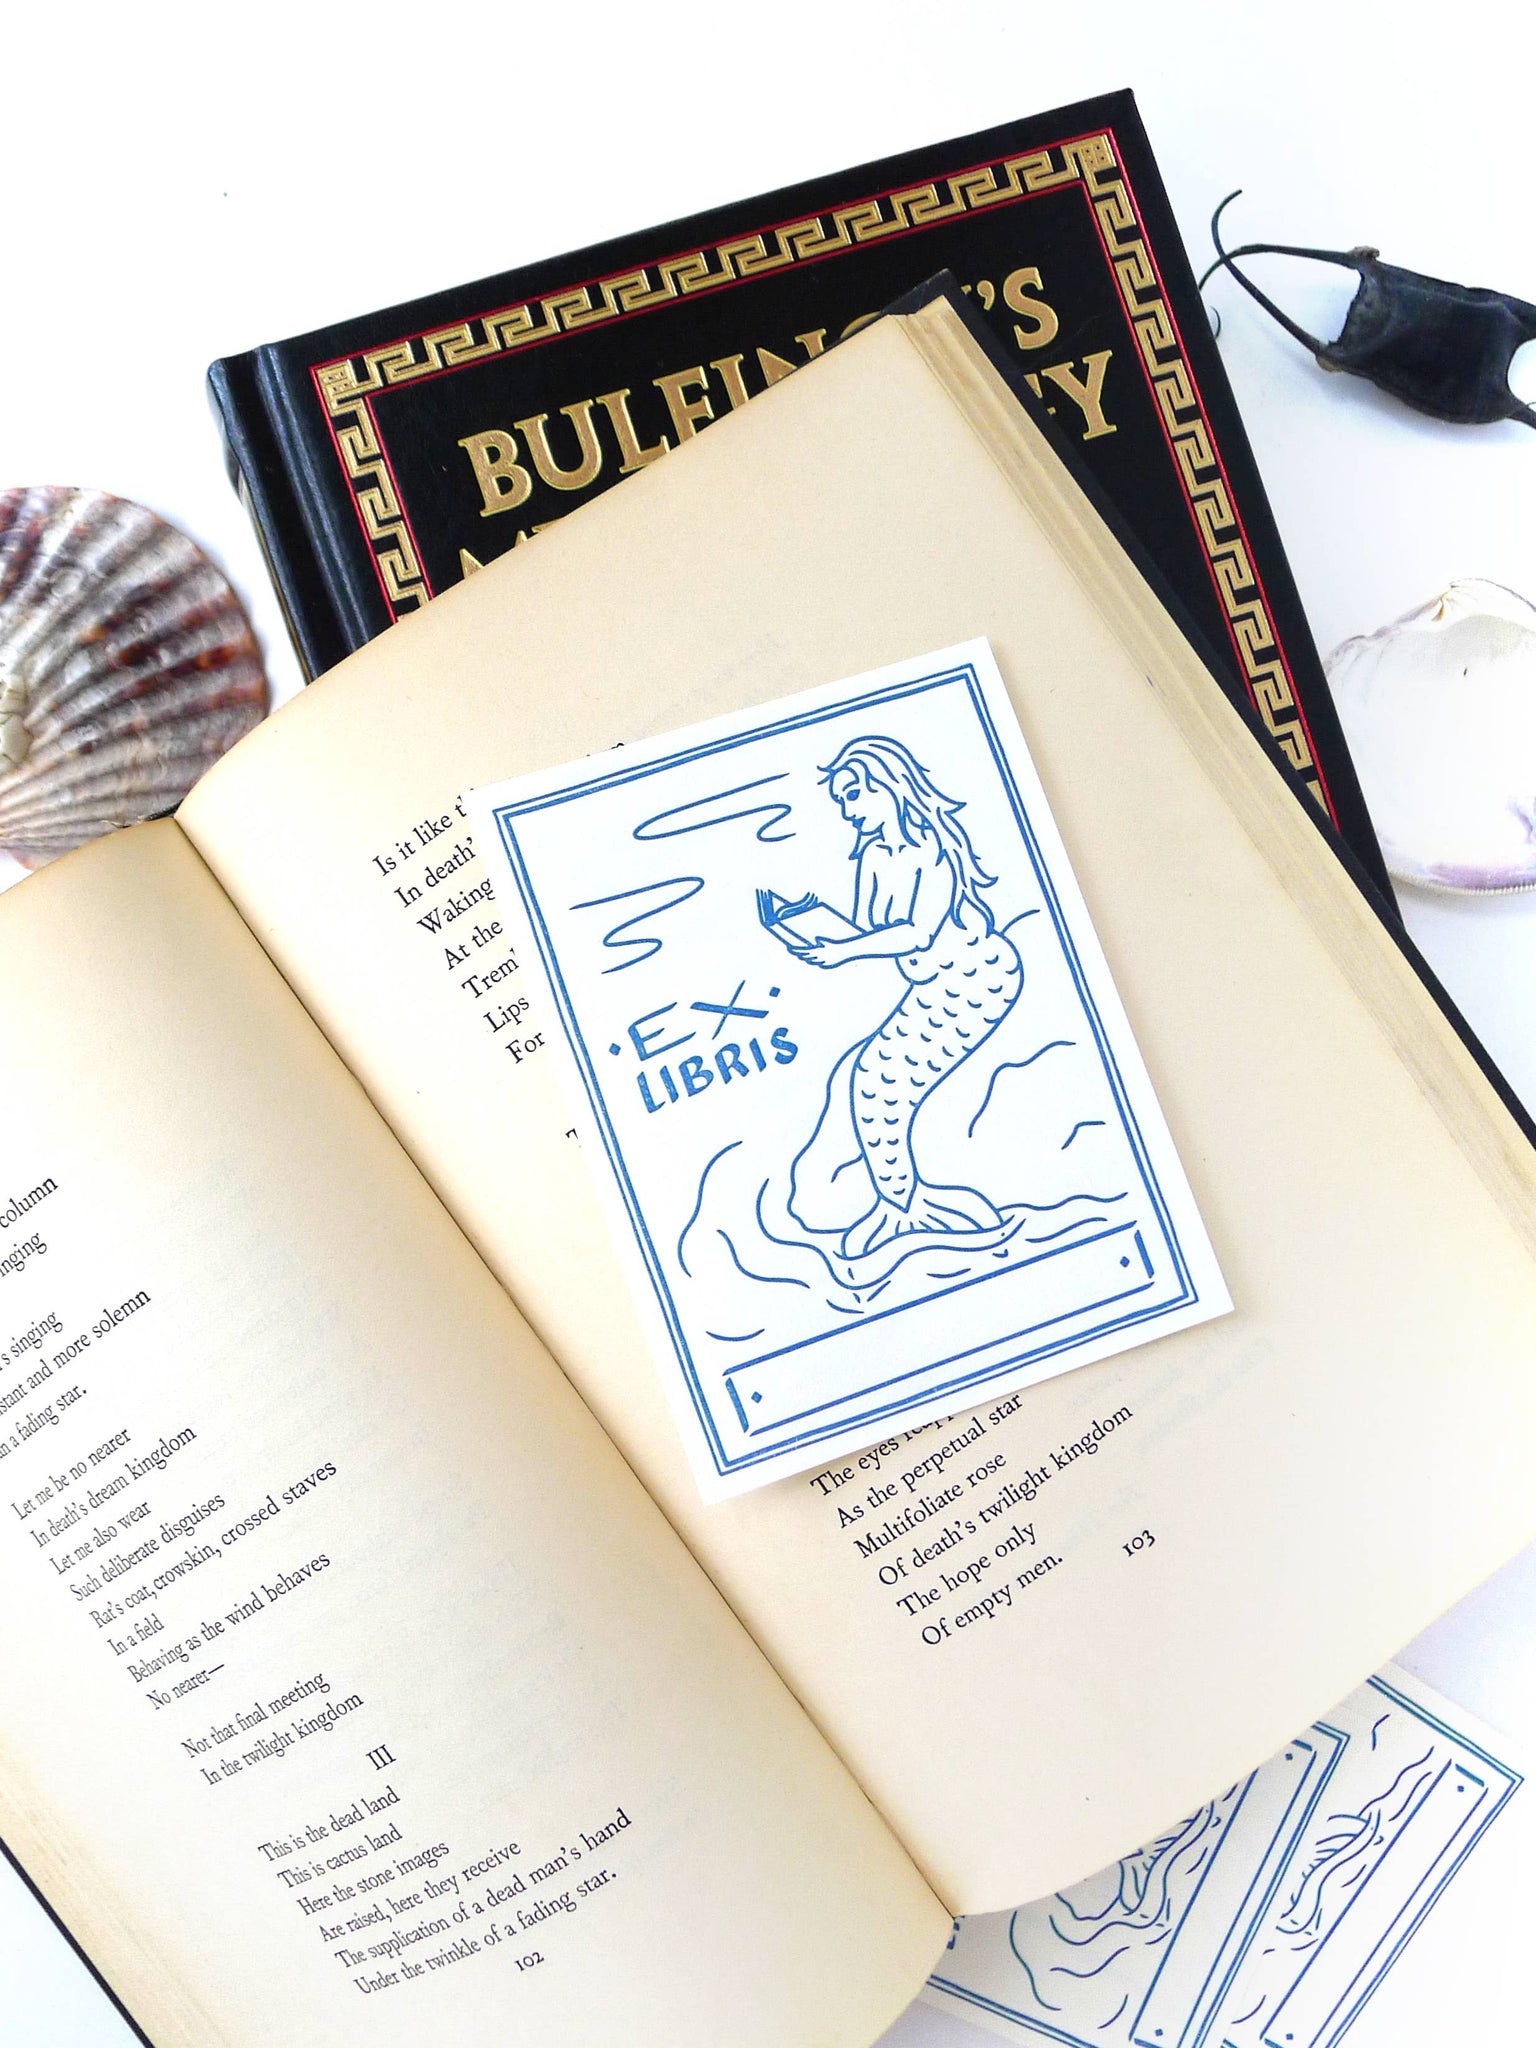 BULFIN 'S
column
singing
and more solemn
a fading star.
Let me be no nearer
In death's dream kingdom
Let me also wear
Such deliberate disguises
Rat's coat, crowskin, crossed staves
In a field
Behaving as the wind behaves
No nearer—
Not that final meeting
In the twilight kingdom
III
This is the dead land
This is cactus land
Here the stone images
Are raised, here they receive
The supplication of a dead man's hand
Under the twinkle of a fading star.
102
Is it like
In death'
Waking
At the
Trem
Lips
For
·EX·
LIBRIS
The eyes
As the perpetual star
Multifoliate rose
Of death's twilight kingdom
The hope only
Of empty men.
103